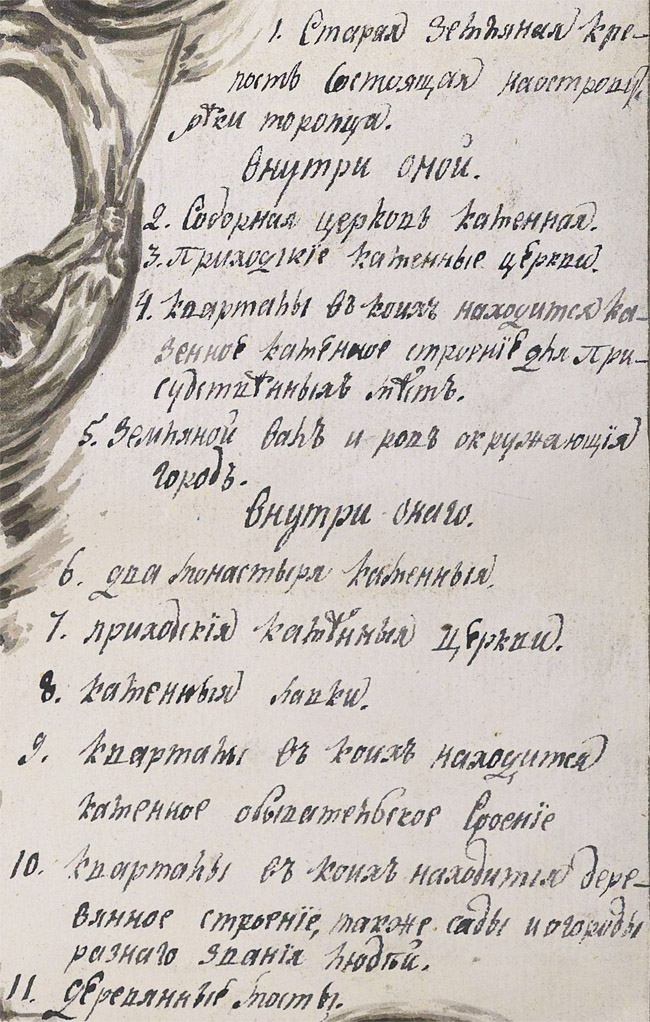 1. Старая Земляная кре-
пость состоящая наострову
рѣки торопца.
Внутри оной.
2. Соборная церковь каменная.
3. Приходскіе каменные церкви.
4. кварталы въ коихъ находится ка-
зенное каменное строеніе для при-
судственныхъ мѣстъ.
5. Земляной валъ и ровъ окружающія
городъ.
Внутри онаго.
6. два монастыря каменныя.
7. приходскія каменныя церкви.
8. каменныя лавки.
9. кварталы въ коихъ находится
каменное обывательское строеніе
10. кварталы въ коихъ находится дере-
вянное строеніе, також сады и огороды
разнаго званія людѣй.
11. деревянные мосты.